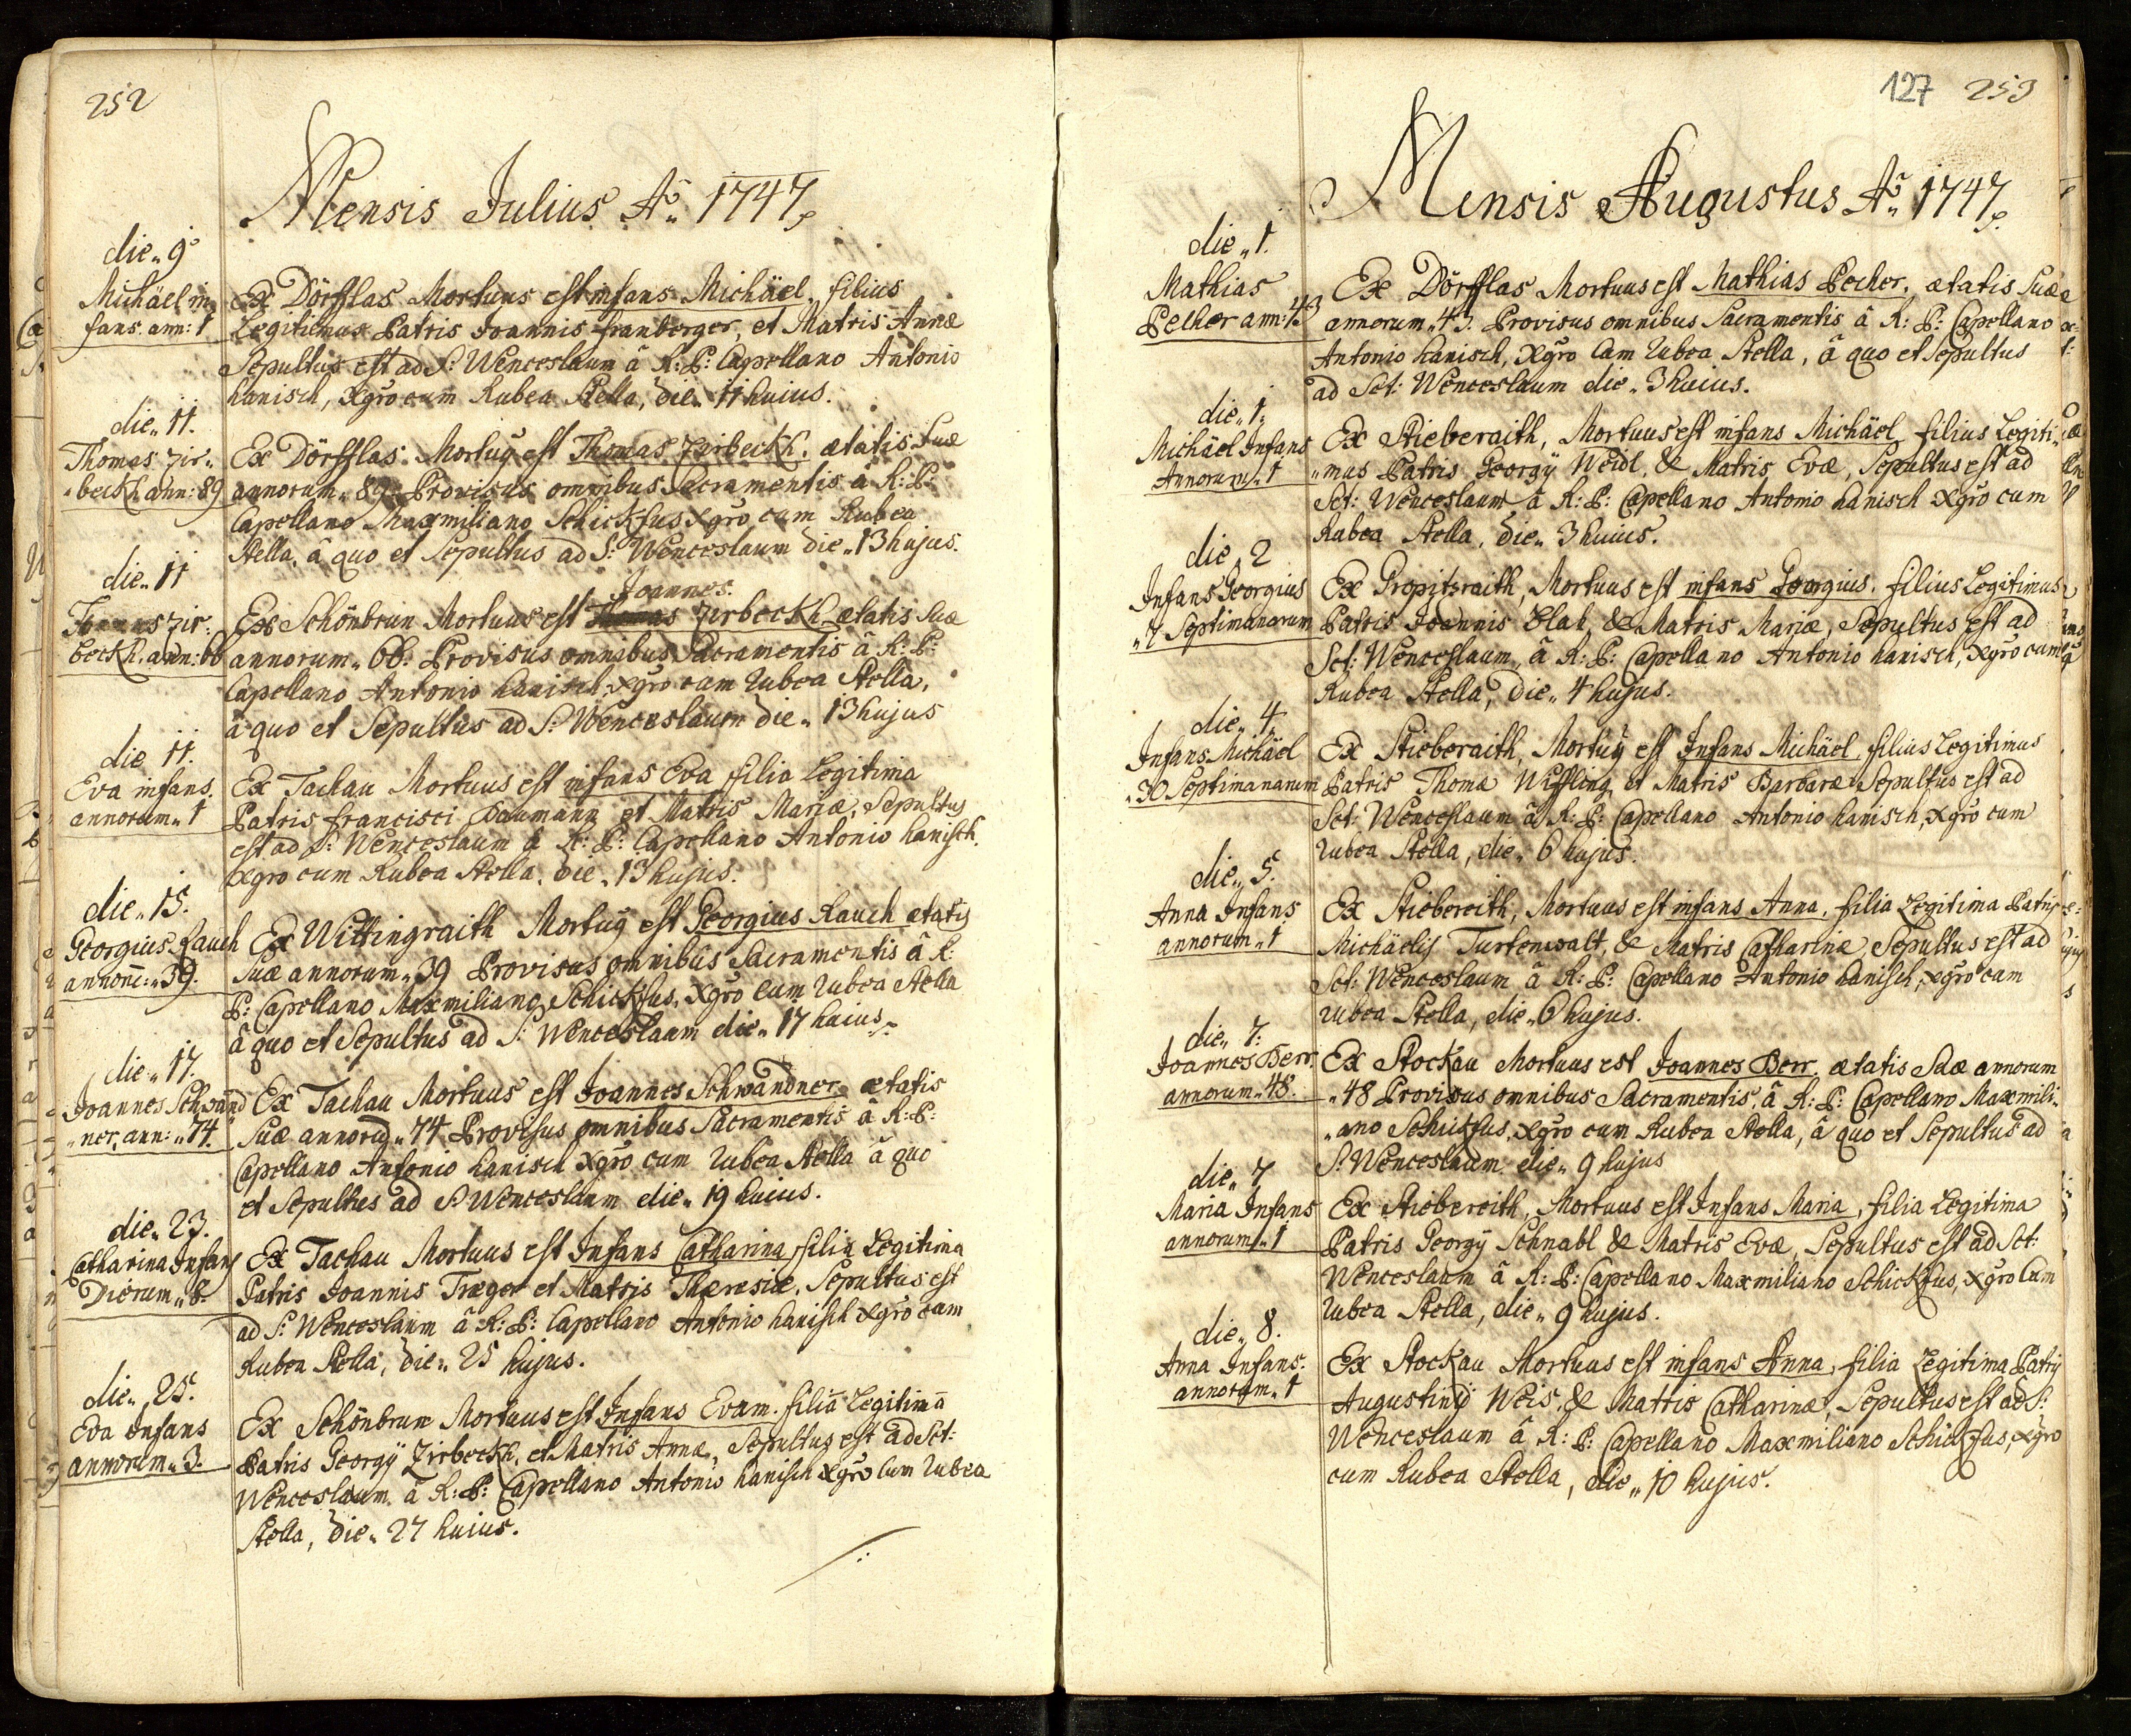 252
Mensis Julius Aō 1747
die„ 9
Michäel in„
fans. ann: 1
Ex Dörfflas Mortuus est infans Michäel, filius
Legitimus Patris Joannis franberger, et Matris Annæ
Sepultus est ad S: Wenceslaum â R: P: Capellano Antonio
hanisch, Xgro cum Rubea Stella, die„ 11 huius.
die„ 11.
Thomas zir„
„beckh ann: 89
Ex Dörfflas Mortuy est Thomas zirbeckh. ætatis Suæ
annorum„ 89. Provisus omnibus Sacramentis â R: P:
Capellano Maxmiliano Schickfus Xgro cum Rubea
Stella, â quo et Sepultus ad S: Wenceslaum die„ 13 hujus.
die„ 11
zir:
beckh. ann: 66
Joannes.
Ex Schönbrun Mortuus est Thomas zirbeckh ætatis Suæ
annorum„ 66. Provisus omnibus Sacramentis â R: P:
Capellano Antonio hanisch, Xgro cum Rubea Stella,
â quo et Sepultus ad S: Wenceslaum die„ 13 hujus
die 11.
Eva infans.
annorum„ 1
Ex Tachau Mortuus est infans Eva, filia Legitima
Patris francisci Baumann et Matris Mariæ, Sepultus
est ad S: Wenceslaum â R: P: Capellano Antonio hanisch.
Xgro cum Rubea Stella, die„ 13 hujus.
die„ 15.
Georgius Rauch
annorū: „39.
Ex Wittingraith Mortuy est Georgius Rauch ætatis
Suæ annorum„ 39 Provisus omnibus Sacramentis â R:
P: Capellano Maxmiliano Schickfus, Xgro cum Rubea Stella
â quo et Sepultus ad S: Wenceslaum die„ 17 huius
die„ 17.
Joannes Schwand
„ner, ann: „74.
Ex Tachau Mortuus est Joannes Schwandner ætatis
Suæ annorū„ 74 Provisus omnibus Sacramentis â R: P:
Capellano Antonio hanisch Xgro cum Rubea Stella â quo
et Sepultus ad S: Wenceslaum die„ 19 huius.
die„ 23.
Catharina Infans
Dierum„ 8.
Ex Tachau Mortuus est Infans Catharina, filia Legitima
Patris Joannis Træger et Matris Theresiæ, Sepultus est
ad S: Wenceslaum â R: P: Capellano Antonio hanisch Xgro cum
Rubea Stella, die„ 25 hujus.
die„ 25.
Eva Infans
annorum„ 3.
Ex Schönbrun Mortuus est Infans Evam. filiā Legitimā
Patris Georgÿ Zirbeckh, et Matris Annæ, Sepultus est ad Sct:
Wenceslaum. â R: P: Capellano Antonio hanisch Xgro cum Rubea
Stella, die„ 27 huius.
127 253
Mensis Augustus Aō 1747
die„ 1.
Mathias
Pelher ann: 43
Ex Dörfflas Mortuus est Mathias Pecher. ætatis Suæ
annorum„ 43. Provisus omnibus Sacramentis â R: P: Capellano
Antonio hanisch, Xgro Cum Rubea Stella, â quo et Sepultus
ad Sct: Wenceslaum die„ 3 huius.
die„ 1.
Michäel Infans
Annorum„ 1
Ex Stieberaith, Mortuus est infans Michäel, filius Legiti„
„mus Patris Georgÿ Weidl, & Matris Evæ, Sepultus est ad
Sct: Wenceslaum â R: P: Capellano Antonio hanisch Xgro cum
Rubea Stella, die„ 3 huius.
die„ 2
Infans Georgius
„7 Septimanarum
Ex Propitsraith, Mortuus est infans Georgius. filius Legitimus
Patris Joannis Blah, & Matris Mariæ, Sepultus est ad
Sct: Wenceslaum, â R: P: Capellano Antonio hanisch, Xgro cum
Rubea Stella, die„ 4 hujus.
die„ 4.
Infans Michäel
„30 Septimanarum
Ex Stieberaith, Mortuy est Infans Michäel, filius Legitimus
Patris Thomæ Wiffling, et Matris Barbaræ Sepultus est ad
Sct: Wenceslaum â R: P: Capellano Antonio hanisch, Xgro cum
Rubea Stella, die„ 6 hujus.
die„ 5.
Anna Infans
annorum„ 1
Ex Stiebereith, Mortuus est infans Anna, filia Legitima Patris
Michäelis Turtenwalt, & Matris Catharinæ, Sepultus est ad
Sct: Wenceslaum â R: P: Capellano Antonio hanisch, Xgro cum
Rubea Stella, die„ 6 hujus.
die„ 7.
Joannes Derr.
annorum„ 48.
Ex Stockau Mortuus est Joannes Derr. ætatis Suæ annorum
„48 Provisus omnibus Sacramentis, â R: P: Capellano Maxmili„
„ano Schickfus, Xgro cum Rubea Stella, â quo et Sepultus ad
S: Wenceslaum die„ 9 hujus
die„ 7
Maria Infans
annorum„ 1
Ex Stiebereith, Mortuus est Infans Maria, filia Legitima
Patris Georgÿ Schnabl & Matris Evæ, Sepultus est ad Sct:
Wenceslaum â R: P: Capellano Maxmiliano Schickfus, Xgro Cum
Rubea Stella, die„ 9 hujus.
die„ 8.
Anna Infans.
annorum„ 1
Ex Stockau Mortuus est infans Anna, filia Legitima Patris
Augustinÿ Weis, & Matris Catharinæ, Sepultus est ad S:
Wenceslaum â R: P: Capellano Maxmiliano Schickfus, Xgro
cum Rubea Stella, die„ 10 hujus.